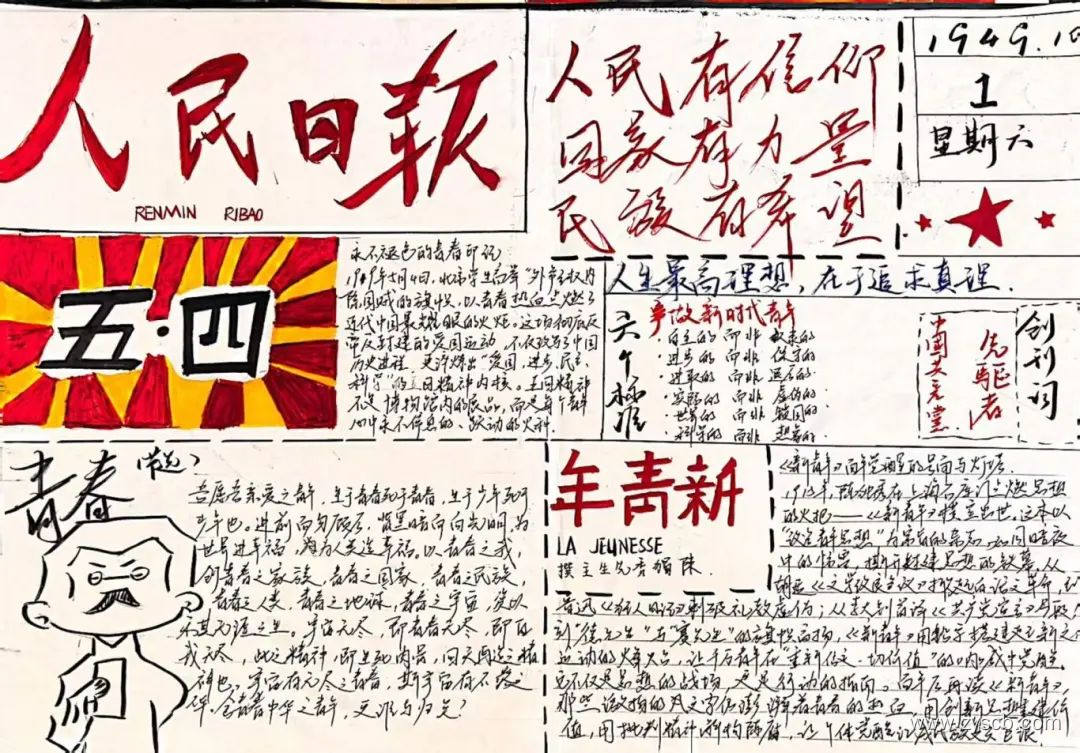 人民日报
RENMIN RIBAO
人民有信仰
国家有力量
民族有希望
1949.10
1
星期六
五·四
永不褪色的青春印记
1919年5月4日,北京学生高举"外争主权,内
除国贼的旗帜,以青春热血点燃了
近代中国最耀眼的火炬。这场彻底反
帝反封建的爱国运动,不仅改写了中国
历史进程,更淬炼出"爱国、进步、民主、
科学"的五四精神内核。五四精神
不是博物馆内的展品,而是每个青年
心中永不停息的、跃动的火种。
人生最高理想,在于追求真理.
六个标准
争做新时代青年
·自主的 而非 奴隶的
·进步的 而非 保守的
·进取的 而非 退隐的
·实际的 而非 虚伪的
·世界的 而非 锁国的
·科学的 而非 想象的
先驱者
创刊词
青春(节选)
吾愿吾亲爱之青年,生于青春死于青春,生于少年死于
少年也。进前而勿顾后,背黑暗而向光明,为
世界进幸福,为人类造幸福。以青春之我,
创青春之家族,青春之国家,青春之民族,
青春之人类,青春之地球,青春之宇宙,资以
乐其无涯之生。宇宙无尽,即青春无尽,即自
我无尽,此之精神,即生死肉骨,回天再造之精
神也。宇宙有无尽之青春,斯宇宙有不老之
年青新
LA JEUNESSE
撰主生先秀独陈
《新青年》百年觉醒的号角与灯塔.
1915年,陈独秀在上海石库门点燃思想
的火把——《新青年》横空出世。这本以
中的惊雷,
胡适《文学改良刍议》掀起白话文革命,
鲁迅《狂人日记》刺破礼教虚伪;从李大钊首译《共产党宣言》
到"德先生"与"赛先生"的旗帜高扬,《新青年》用铅字搭建起
运动的烽火台,让千万青年在"重新估定一切价值"的
它不仅是思想的战场,更是行动的指南。百年后再读《新青年》,